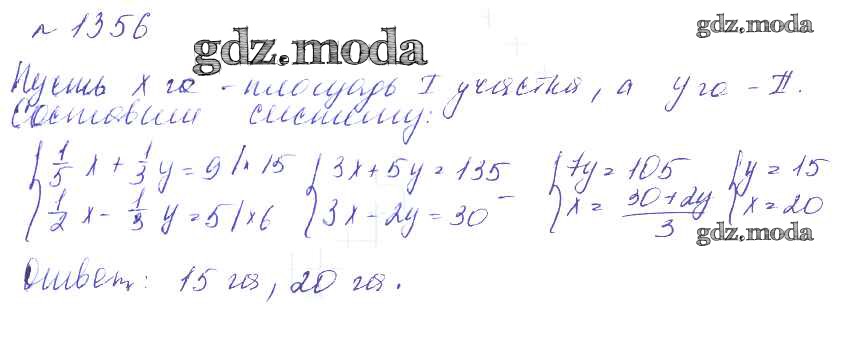 № 1356
gdz.moda
gdz.moda
Пусть x га - площадь I участка, а y га - II.
Составим систему:
{ 1/5 x + 1/3 y = 9 |· 15 { 3x + 5y = 135 { 7y = 105 { y = 15
{ 1/2 x - 1/3 y = 5 | × 6 { 3x - 2y = 30 - { x = (30 + 2y)/3 { x = 20
gdz.moda
Ответ: 15 га, 20 га.